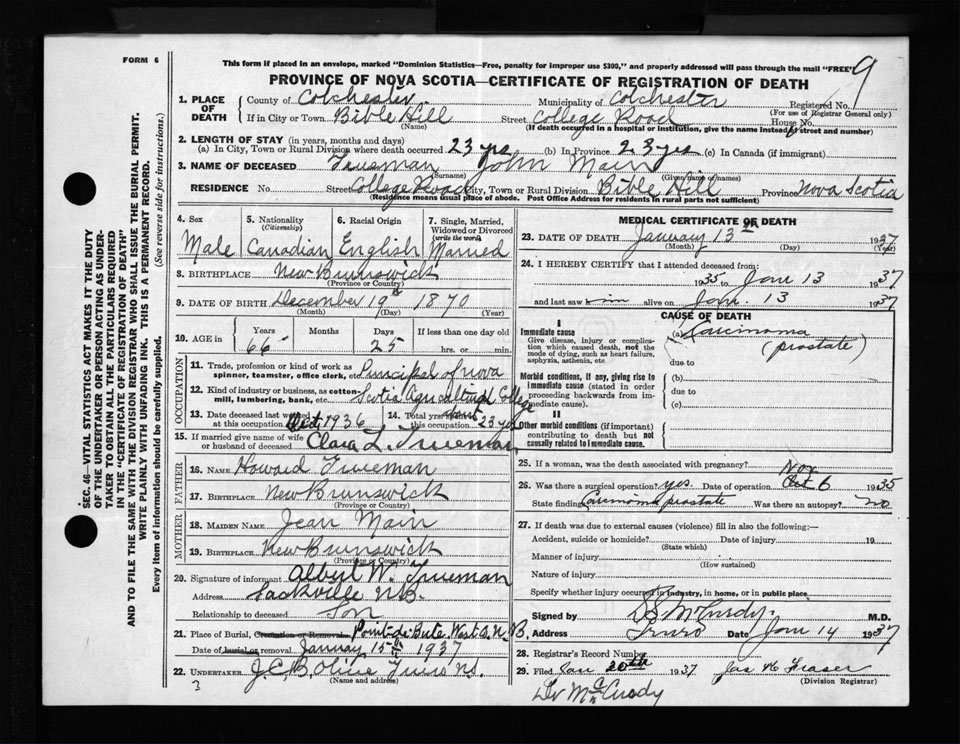 FORM 6
This form if placed in an envelope, marked "Dominion Statistics—Free, penalty for improper use $300," and properly addressed will pass through the mail "FREE" 9
PROVINCE OF NOVA SCOTIA—CERTIFICATE OF REGISTRATION OF DEATH
1. PLACE OF DEATH County of Colchester Municipality of Colchester Registered No.
(For use of Registrar General only)
If in City or Town Bible Hill Street College Road House No.
(Name) (If death occurred in a hospital or institution, give the name instead of street and number)
2. LENGTH OF STAY (in years, months and days)
(a) In City, Town or Rural Division where death occurred 23 yrs (b) In Province 23 yrs (c) In Canada (if immigrant)
3. NAME OF DECEASED Trueman John Main
(Surname) (Given name or names)
RESIDENCE No. Street College Road City, Town or Rural Division Bible Hill Province Nova Scotia
(Residence means usual place of abode. Post Office Address for residents in rural parts not sufficient)
4. Sex Male
5. Nationality (Citizenship) Canadian
6. Racial Origin English
7. Single, Married, Widowed or Divorced (write the word) Married
8. BIRTHPLACE New Brunswick
(Province or Country)
9. DATE OF BIRTH December 19th 1870
(Month) (Day) (Year)
10. AGE in Years 66 Months Days 25 If less than one day old hrs. or min.
OCCUPATION
11. Trade, profession or kind of work as spinner, teamster, office clerk, etc. Principal of Nova
12. Kind of industry or business, as cotton-mill, lumbering, bank, etc. Scotia Agricultural College
13. Date deceased last worked at this occupation Oct. 1936
14. Total yrs. spent in this occupation 23 yrs
15. If married give name of wife or husband of deceased Clara L. Trueman
FATHER
16. NAME Howard Trueman
17. BIRTHPLACE New Brunswick
(Province or Country)
MOTHER
18. MAIDEN NAME Jean Main
19. BIRTHPLACE New Brunswick
(Province or Country)
20. Signature of informant Albert W. Trueman
Address Sackville N.B.
Relationship to deceased Son
21. Place of Burial, Cremation or Removal Point de Bute, West. Co. N.B.
Date of burial or removal January 15th 1937
22. UNDERTAKER J.E.B. Truro N.S.
(Name and address)
3
MEDICAL CERTIFICATE OF DEATH
23. DATE OF DEATH January 13th 1937
(Month) (Day) (Year)
24. I HEREBY CERTIFY that I attended deceased from:
1935 to Jan 13 1937
and last saw him alive on Jan. 13 1937
CAUSE OF DEATH
I
Immediate cause
Give disease, injury or complication which caused death, not the mode of dying, such as heart failure, asphyxia, asthenia, etc.
(a) Carcinoma
(prostate)
due to
Morbid conditions, if any, giving rise to immediate cause (stated in order proceeding backwards from immediate cause).
(b)
due to
(c)
II
Other morbid conditions (if important) contributing to death but not causally related to immediate cause.
25. If a woman, was the death associated with pregnancy?
26. Was there a surgical operation? yes. Date of operation Nov Oct 6 1935
State finding Carcinoma prostate Was there an autopsy? no
27. If death was due to external causes (violence) fill in also the following:—
Accident, suicide or homicide? Date of injury 19
(State which)
Manner of injury
(How sustained)
Nature of injury
Specify whether injury occurred in industry, in home, or in public place
Signed by McCurdy M.D.
Address Truro Date Jan 14 1937
28. Registrar's Record Number
29. Filed Jan 20th 1937 Jas H Fraser
(Division Registrar)
Dr McCurdy
SEC. 46—VITAL STATISTICS ACT MAKES IT THE DUTY OF THE UNDERTAKER OR PERSON ACTING AS UNDERTAKER TO OBTAIN ALL THE PARTICULARS REQUIRED IN THE "CERTIFICATE OF REGISTRATION OF DEATH" AND TO FILE THE SAME WITH THE DIVISION REGISTRAR WHO SHALL ISSUE THE BURIAL PERMIT.
WRITE PLAINLY WITH UNFADING INK. THIS IS A PERMANENT RECORD.
Every item of information should be carefully supplied. (See reverse side for instructions.)